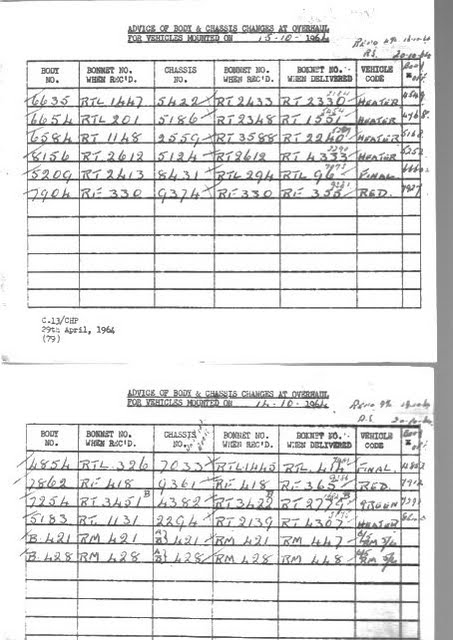 ADVICE OF BODY & CHASSIS CHANGES AT OVERHAUL
FOR VEHICLES MOUNTED ON 15-10-1964
20-10-64
BODY NO. BONNET NO. WHEN REC'D. CHASSIS NO. BONNET NO. WHEN REC'D. BONNET NO. WHEN DELIVERED VEHICLE CODE
6635 RTL 1447 5422 RT 2433 RT 2330 HEATER
6654 RTL 201 5186 RT 2348 RT 1551 HEATER
6584 RT 1148 2559 RT 3588 RT 2240 HEATER
8156 RT 2612 5124 RT 2612 RT 4333 HEATER 5252
5209 RT 2413 8431 RTL 294 RTL 96 FINAL
7904 RF 330 9374 RF 330 RF 355 RED. 7927
C.13/CHP
29th April, 1964
(79)
ADVICE OF BODY & CHASSIS CHANGES AT OVERHAUL
FOR VEHICLES MOUNTED ON 14-10-1964
BODY NO. BONNET NO. WHEN REC'D. CHASSIS NO. BONNET NO. WHEN REC'D. BONNET NO. WHEN DELIVERED VEHICLE CODE
4854 RTL 326 7033 RTL 1445 RTL 414 FINAL
7862 RF 418 9361 RF 418 RF 365 RED. 7912
7254 RT 3451 B 4382 RT 3422 B RT 277 B GREEN
5183 RT 1131 2294 RT 2139 RT 4307 HEATER
B.421 RM 421 A B 421 RM 421 RM 447 RM 3/4
B.428 RM 428 A B 428 RM 428 RM 448 RM 3/4